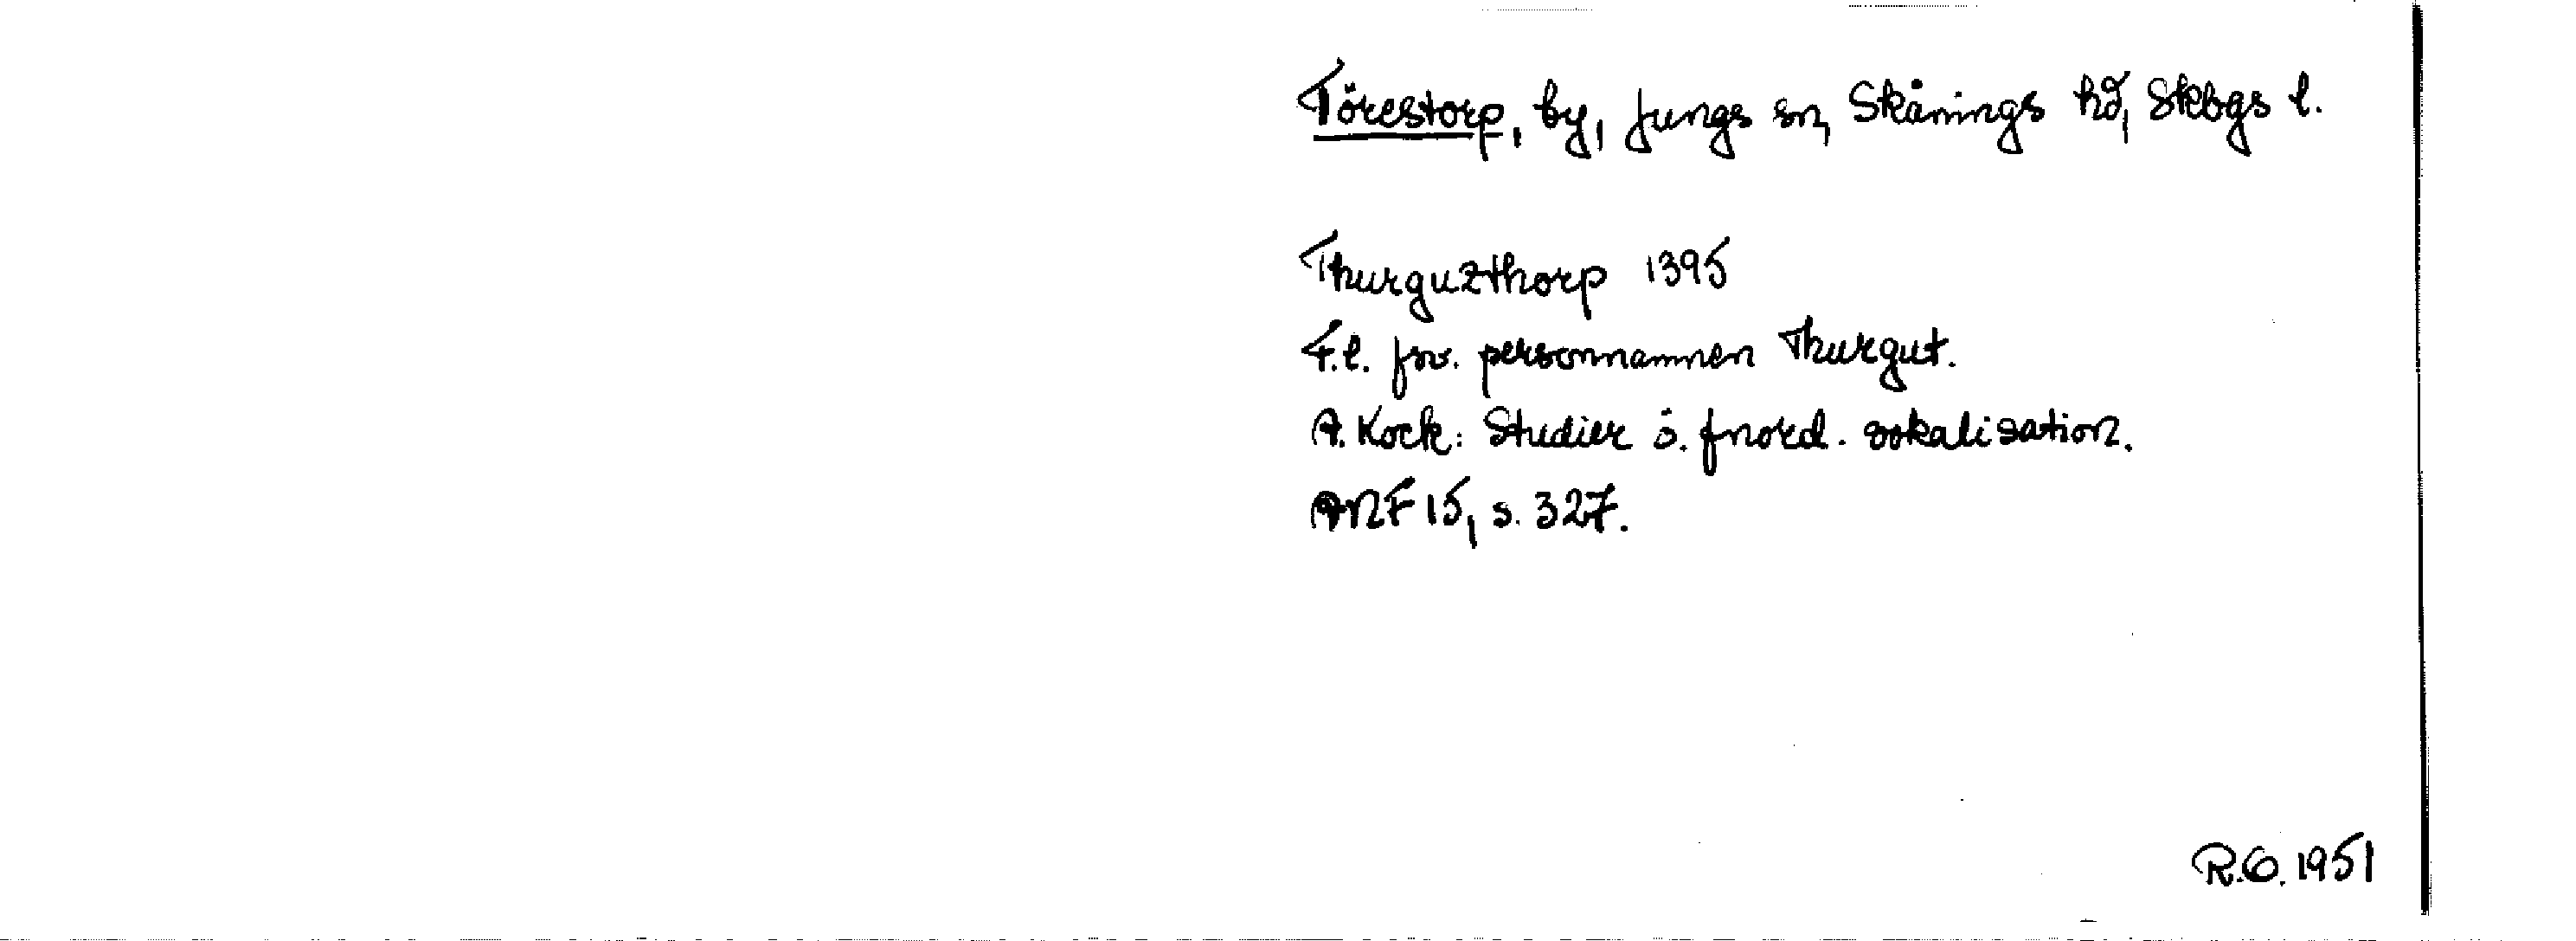 Törestorp, by, Jungs sn, Skånings hd, Skbgs l.
Thurguzthorp 1395
F.l. fsv. personnamnen Thurgut.
A. Kock: Studier ö. fnord. vokalisation.
ANF 15, s. 327.
R.O. 1951